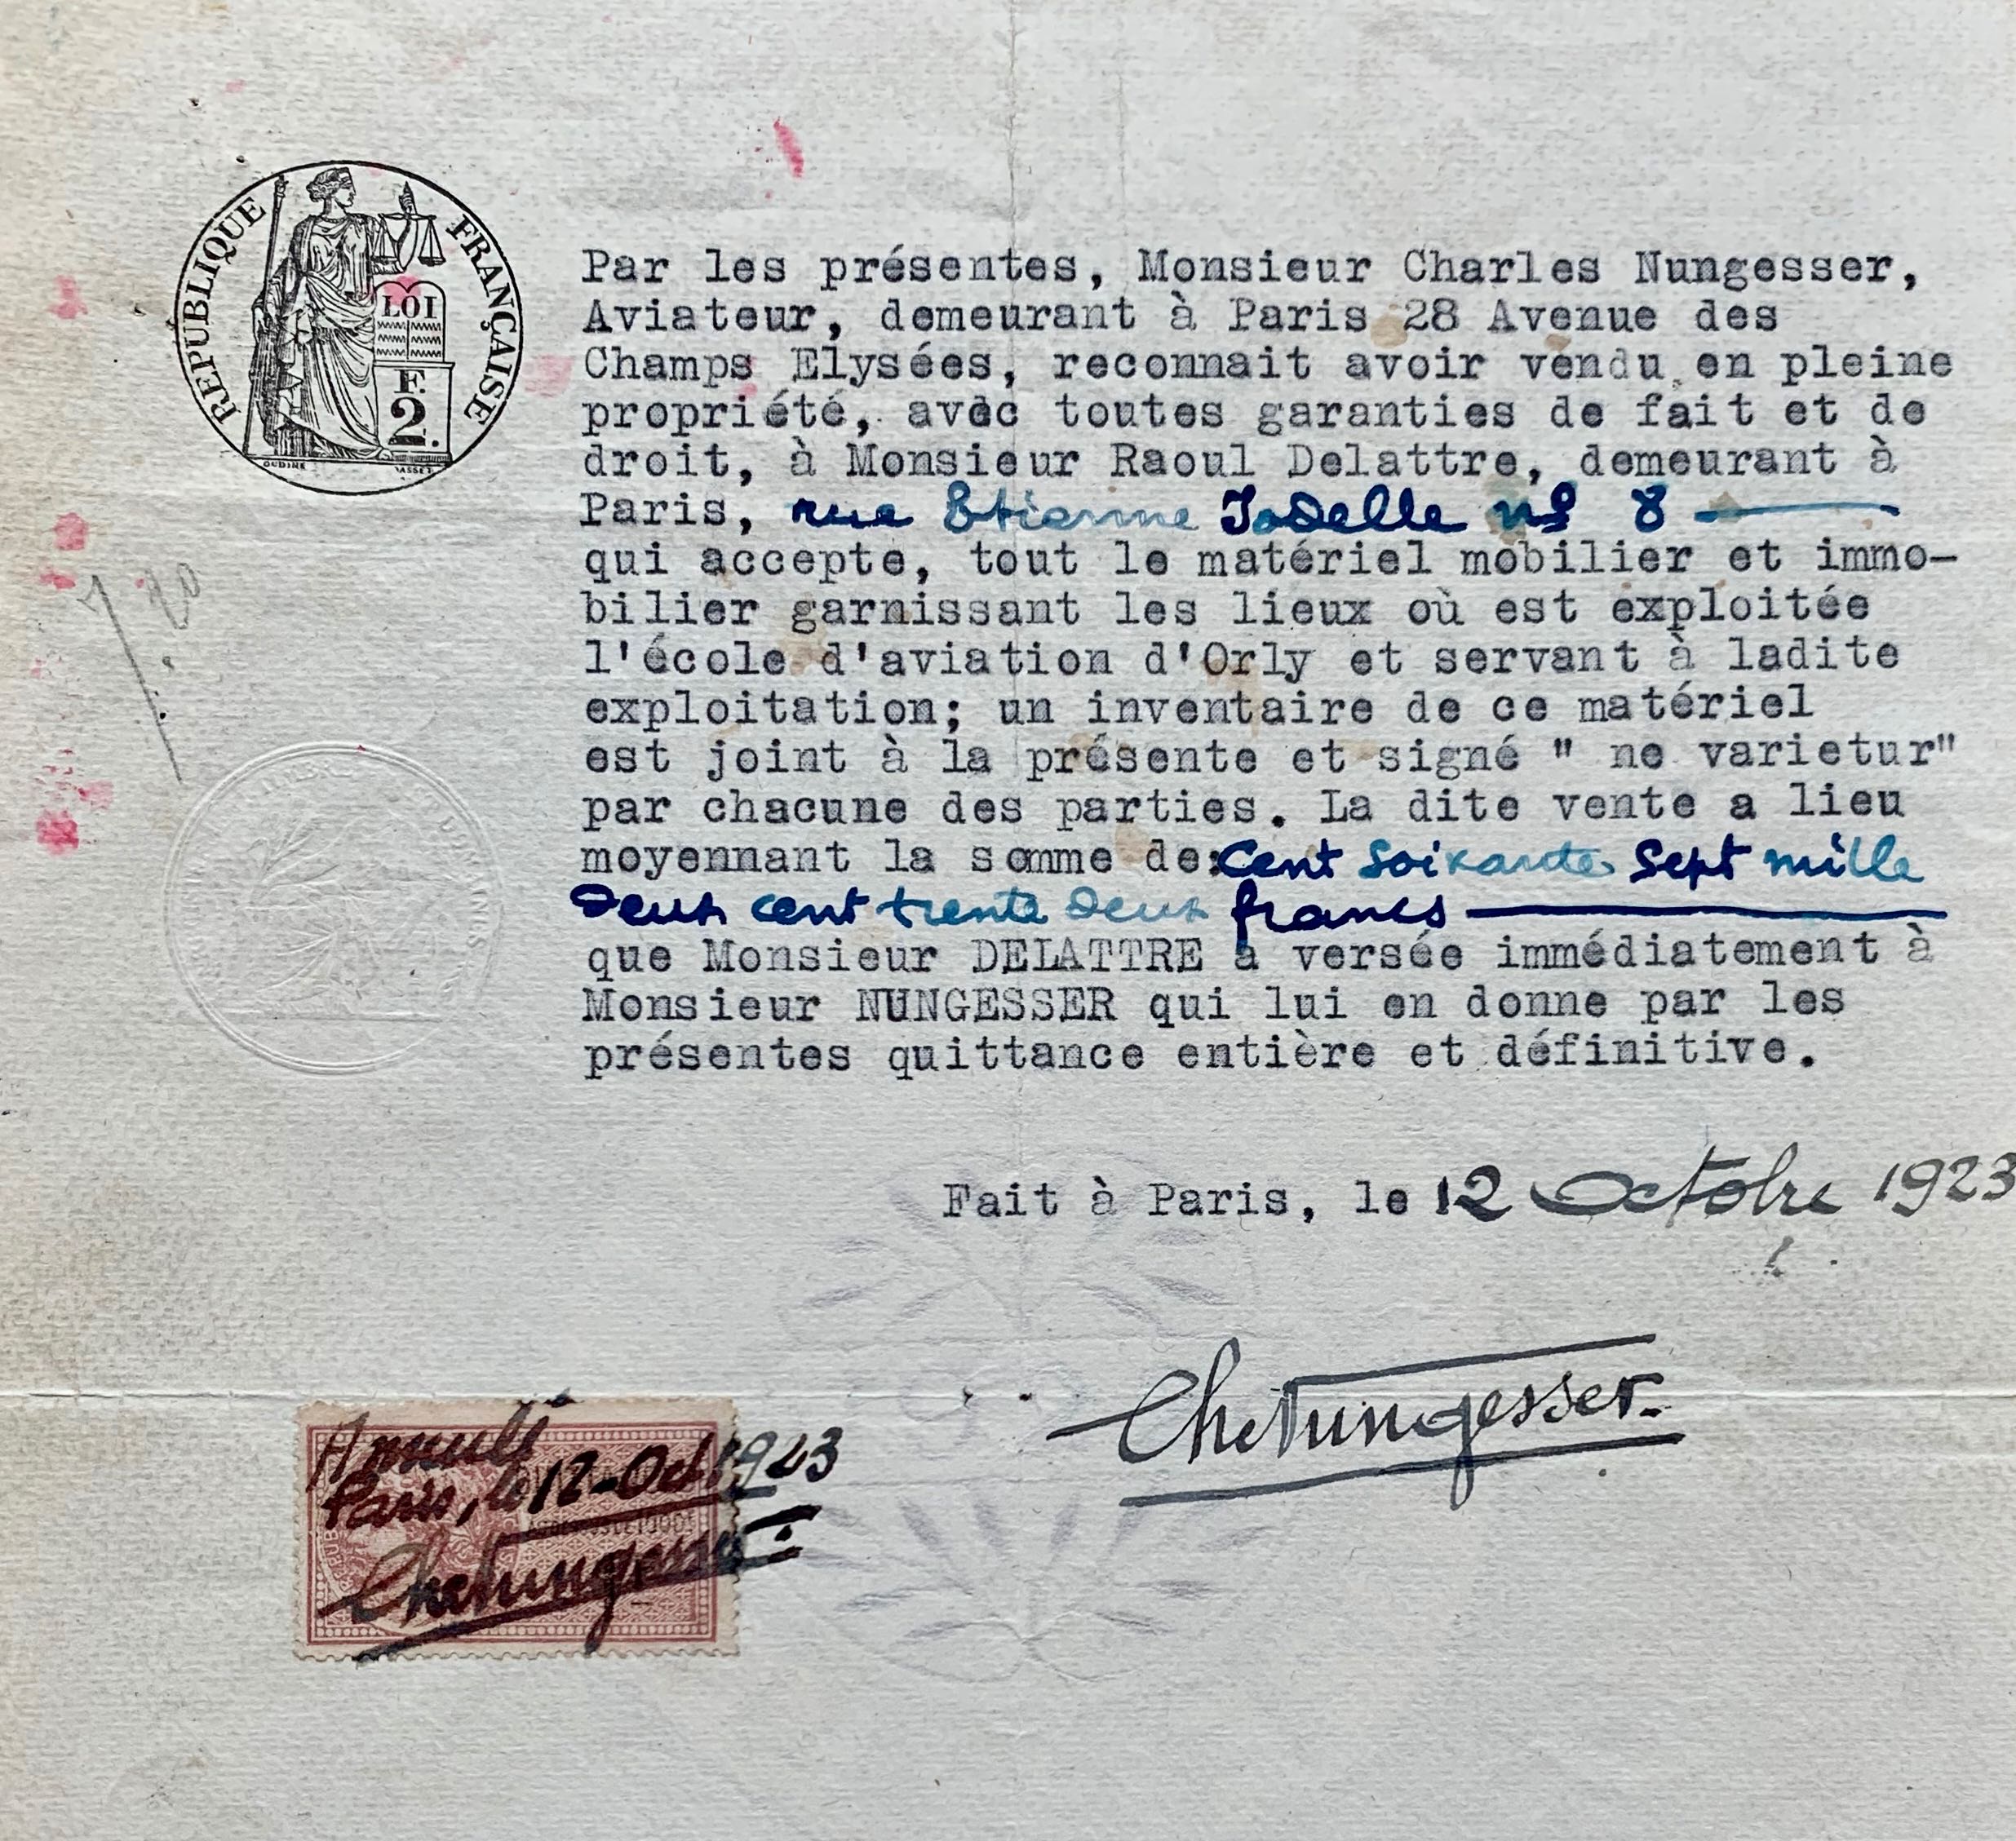 RÉPUBLIQUE FRANÇAISE
LOI
F.
2.
OUDINE
Par les présentes, Monsieur Charles Nungesser,
Aviateur, demeurant à Paris 28 Avenue des
Champs Elysées, reconnait avoir vendu en pleine
propriété, avec toutes garanties de fait et de
droit, à Monsieur Raoul Delattre, demeurant à
Paris, rue Etienne Jodelle nº 8
qui accepte, tout le matériel mobilier et immo-
bilier garnissant les lieux où est exploitée
l'école d'aviation d'Orly et servant à ladite
exploitation; un inventaire de ce matériel
est joint à la présente et signé " ne varietur"
par chacune des parties. La dite vente a lieu
moyennant la somme de: Cent soixante sept mille
deux cent trente deux francs
que Monsieur DELATTRE a versée immédiatement à
Monsieur NUNGESSER qui lui en donne par les
présentes quittance entière et définitive.
Fait à Paris, le 12 Octobre 1923
ChNungesser
Annulé
Paris, le 12-Oct 1923
ChNungesser